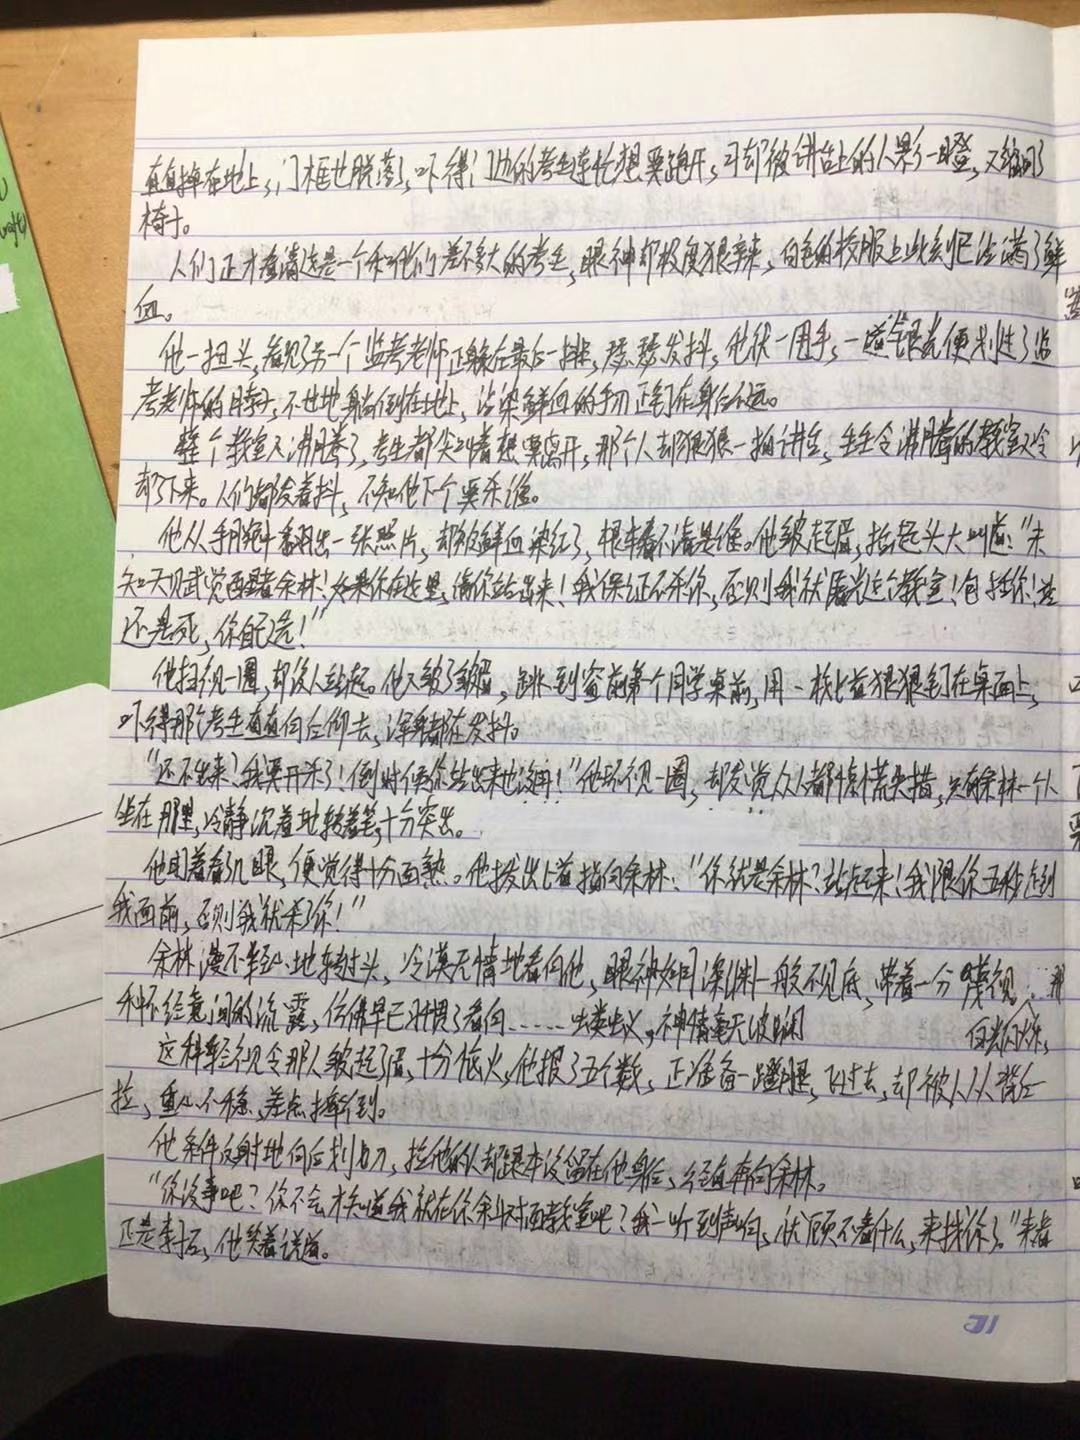 直直掉在地上,门框也脱落了,吓得门边的考生连忙想要跑开,可却被讲台上的人影一瞪,又缩回了
椅子。
人们正才看清这是一个和他们差不多大的考生,眼神却极度狠辣,白色的校服上此刻已沾满了鲜
血。
他一扭头,看见了另一个监考老师正躲在最后一排,瑟瑟发抖,他伏一甩手,一道银光便划过了监
考老师的脖子,不甘地躺倒在地上,沾染鲜血的手刃正钉在身后不远。
整个教室又沸腾了,考生都尖叫着想要离开,那个人却狠狠一拍讲台,生生令沸腾的教室又冷
却了下来。人们都发着抖,不知他下个要杀谁。
他从手腕中翻出一张照片,却被鲜血染红了,根本看不清是谁。他皱起眉,抬起头大叫道:“未
知天见武觉醒者余林!如果你在这里,请你站出来!我保证不杀你,否则我就屠光这个教室!包括你!活
还是死,你自己选!”
他扫视一圈,却没人站起。他又皱了皱眉,跳到窗前第一个同学桌前,用一柄匕首狠狠钉在桌面上,
吓得那个考生直直向后仰去,浑身都在发抖。
“还不出来?我要开杀了!到时便你站出来也没用!”他环视一圈,却发觉人人都惊慌失措,只有余林一个人
坐在那里,冷静沉着地转着笔,十分突出。
他盯着看了几眼,便觉得十分面熟。他拔出匕首指向余林:“你就是余林?站起来!我限你五秒走到
我面前,否则我就杀了你!”
余林漫不经心地转过头,冷漠无情地看向他,眼神如同深渊一般不见底,带着一分蔑视,那
种不经意间的流露,仿佛早已习惯了看向……出类出义,神情毫无波澜 白光闪烁,
这种轻视令那人皱起了眉,十分恼火,他报了五个数,正准备一蹬腿,飞过去,却被人从背后一
拉,重心不稳,差点摔倒。
他条件反射地向后划切,拉他的人却跟本没留在他身后,径直奔向余林。
“你没事吧?你不会不知道我就在你余斗对面教室吧?我一听到声响,就顾不着什么,来找你了。”来者
正是李石,他笑着说道。
31